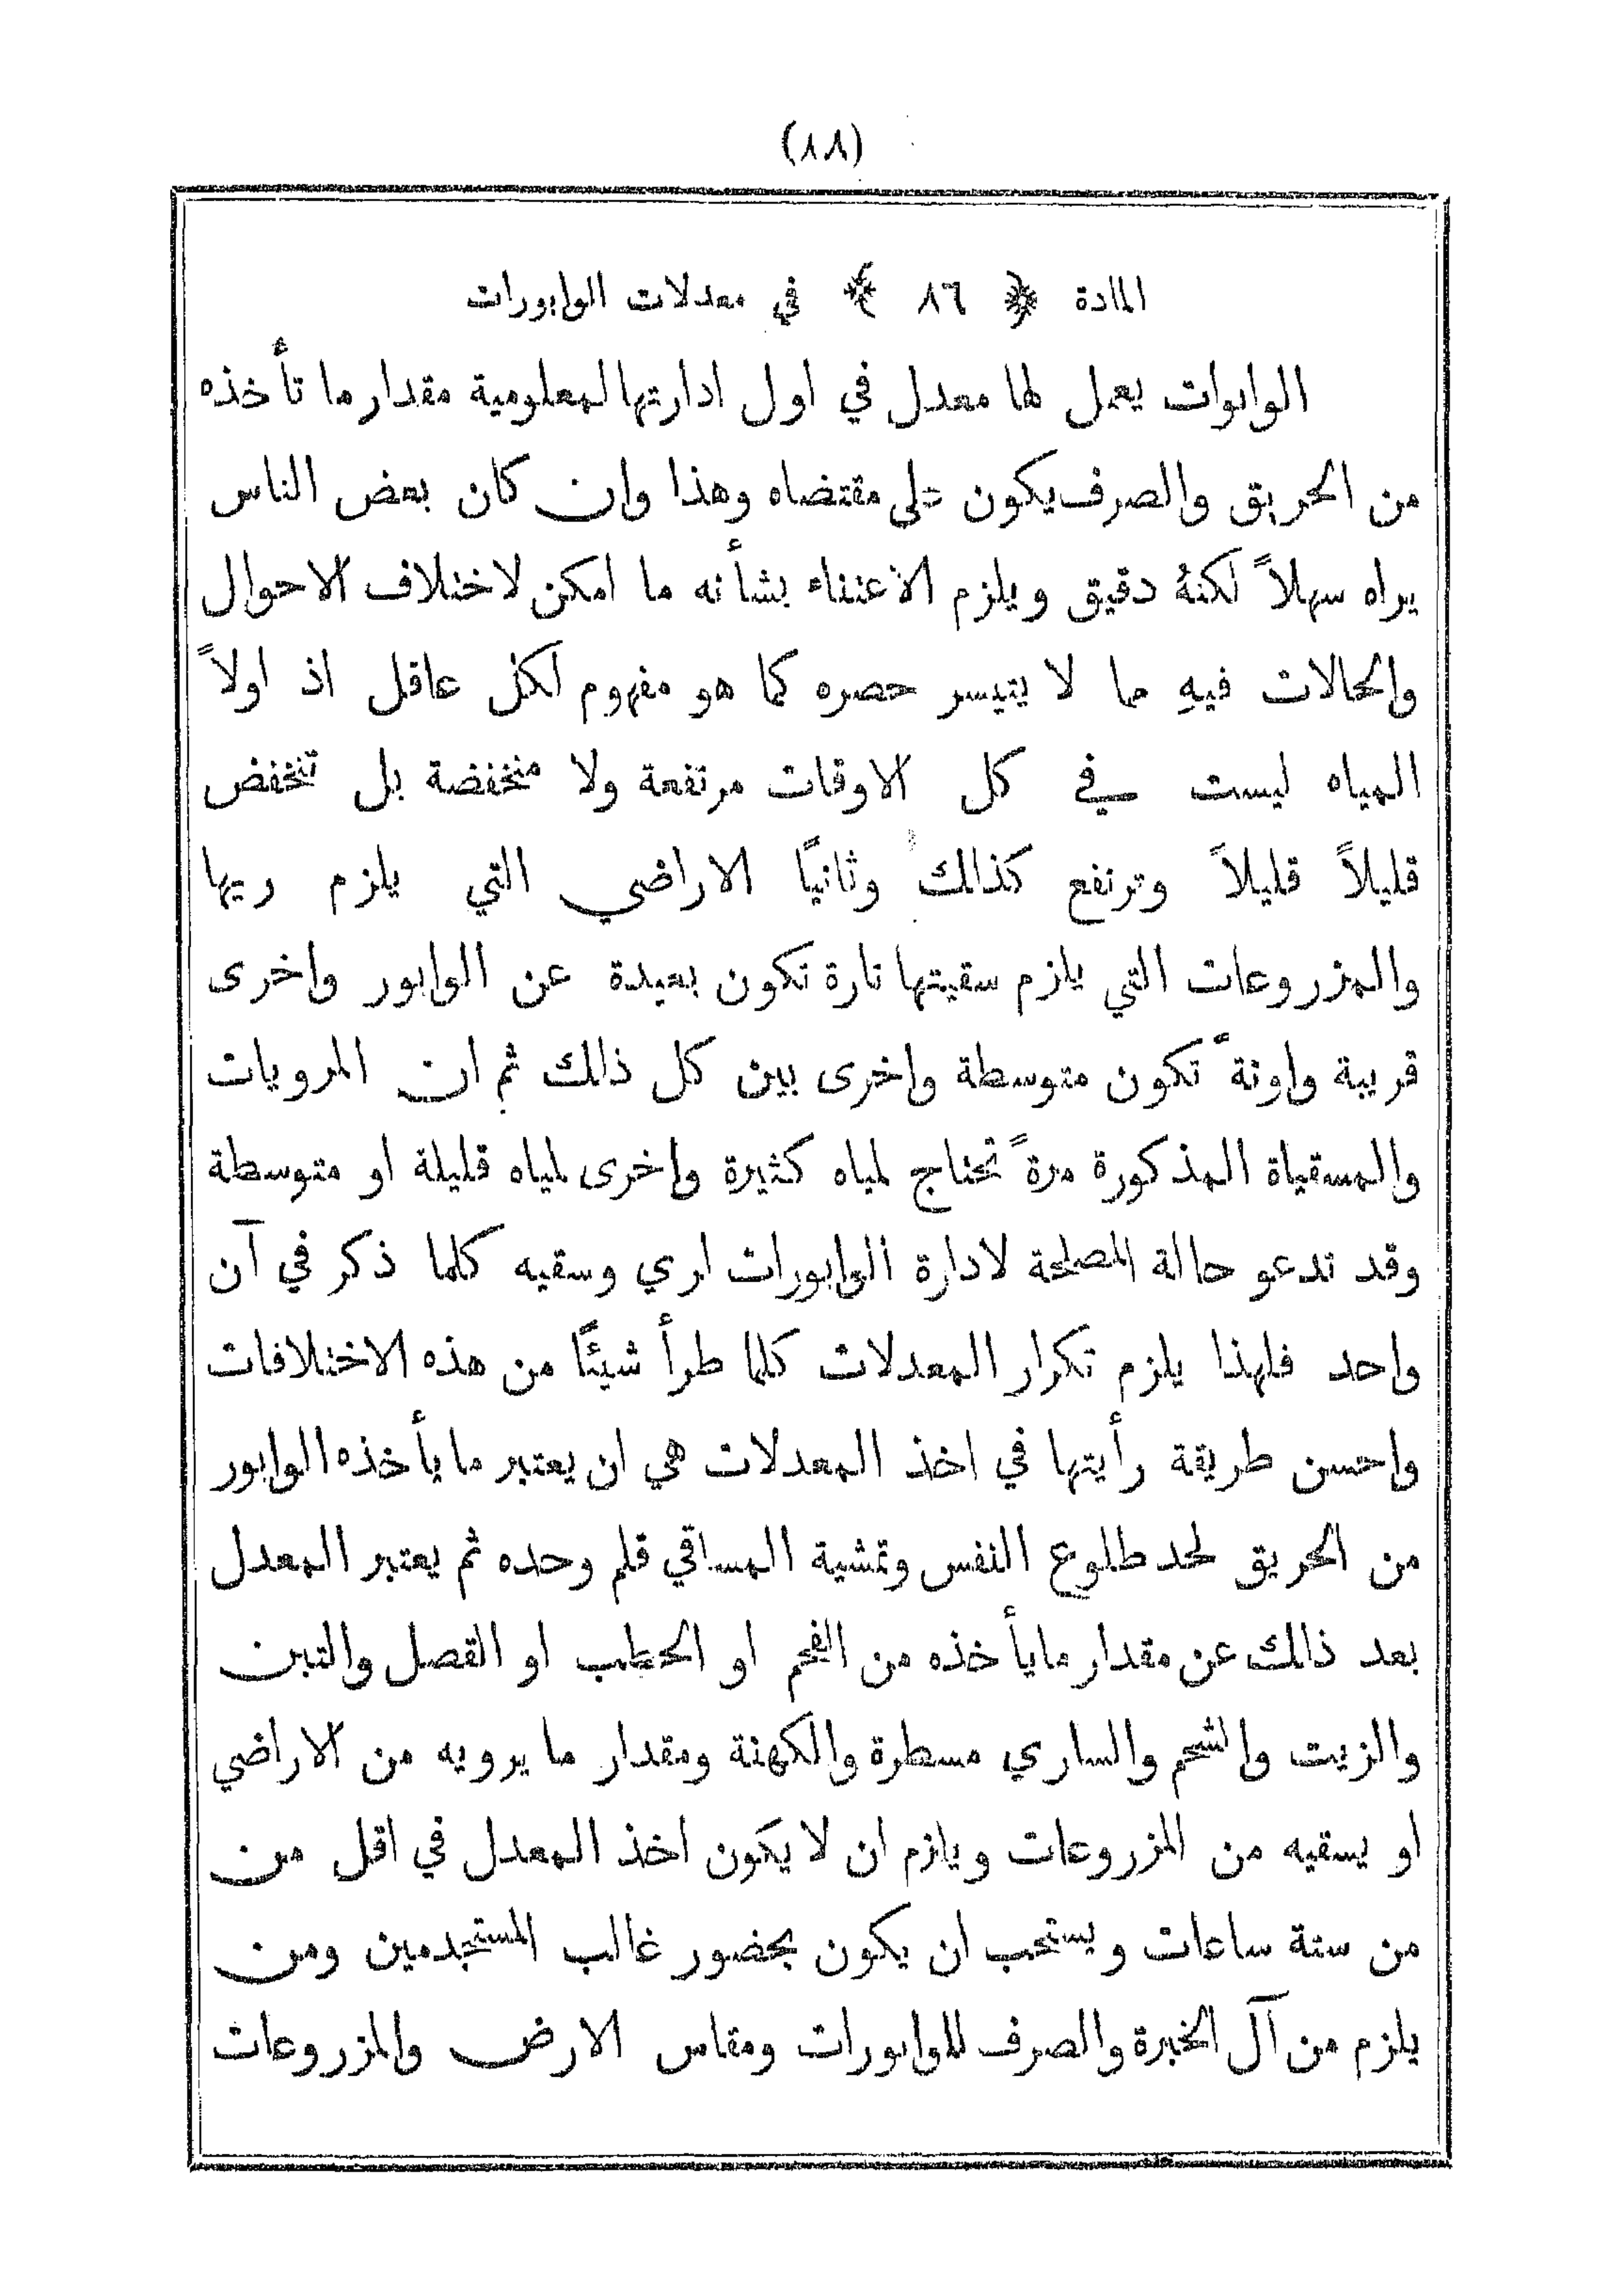 (٨٨)
المادة ﴿ ٨٦ ﴾ في معدلات الوابورات
الوابوات يعمل لها معدل في اول ادارتها لمعلومية مقدار ما تأخذه
من الحريق والصرف يكون على مقتضاه وهذا وان كان بعض الناس
يراه سهلاً لكنهُ دقيق ويلزم الاعتناء بشأنه ما امكن لاختلاف الاحوال
والحالات فيهِ مما لا يتيسر حصره كما هو مفهوم لكل عاقل اذ اولاً
المياه ليست في كل الاوقات مرتفعة ولا منخفضة بل تنخفض
قليلاً قليلاً وترتفع كذالك وثانيًا الاراضي التي يلزم ريها
والمزروعات التي يلزم سقيتها تارة تكون بعيدة عن الوابور واخرى
قريبة واونةً تكون متوسطة واخرى بين كل ذالك ثم ان المرويات
والمسقياة المذكورة مرةً تحتاج لمياه كثيرة واخرى لمياه قليلة او متوسطة
وقد تدعو حالة المصلحة لادارة الوابورات لري وسقيه كلما ذكر في آن
واحد فلهذا يلزم تكرار المعدلات كلما طرأ شيئًا من هذه الاختلافات
واحسن طريقة رأيتها في اخذ المعدلات هي ان يعتبر ما يأخذه الوابور
من الحريق لحد طلوع النفس وتمشية المساقي قلم وحده ثم يعتبر المعدل
بعد ذالك عن مقدار ما يأخذه من الفحم او الحطب او القصل والتبن
والزيت والشحم والساري مسطرة والكهنة ومقدار ما يرويه من الاراضي
او يسقيه من المزروعات ويلزم ان لا يكون اخذ المعدل في اقل من
من ستة ساعات ويستحب ان يكون بحضور غالب المستجدمين ومن
يلزم من آل الخبرة والصرف للوابورات ومقاس الارض والمزروعات